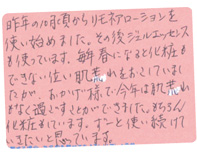 昨年の10月頃からリモネアローションを
使い始めました。その後ジェルエッセンス
も使っています。毎年春になると化粧も
できない位い肌荒れをおこしていまし
たが、おかげ様で今年は肌荒れ
もなく過ごすことができました。もちろん
化粧もしています。ずーと使い続けて
いきたいと思っています。